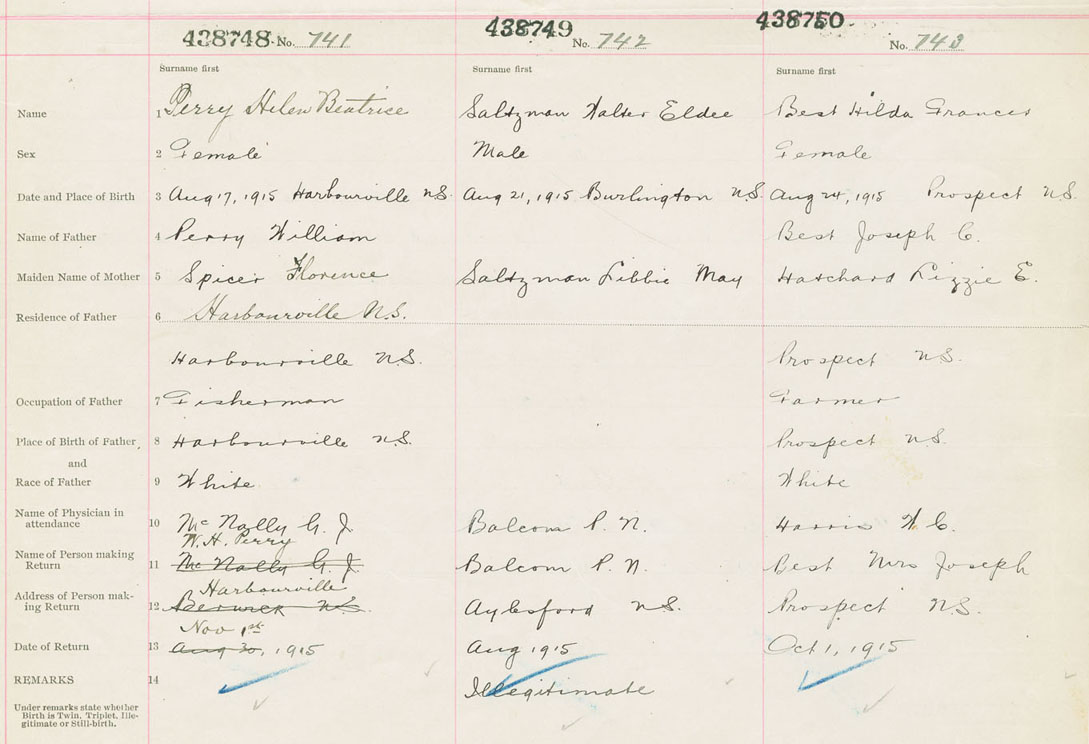 438748 No. 741 438749 No. 742 438750 No. 743
Surname first Surname first Surname first
Name 1 Perry Helen Beatrice Saltzman Walter Eldee Best Hilda Frances
Sex 2 Female Male Female
Date and Place of Birth 3 Aug 17, 1915 Harbourville N.S. Aug 21, 1915 Burlington N.S. Aug 24, 1915 Prospect N.S.
Name of Father 4 Perry William Best Joseph C.
Maiden Name of Mother 5 Spicer Florence Saltzman Libbie May Hatchard Lizzie E.
Residence of Father 6 Harbourville N.S.
Harbourville N.S. Prospect N.S.
Occupation of Father 7 Fisherman Farmer
Place of Birth of Father, 8 Harbourville N.S. Prospect N.S.
and
Race of Father 9 White White
Name of Physician in
attendance 10 McNally G. J. Balcom P. N. Harris W C.
W. H. Perry
Name of Person making
Return 11 McNally G. J. Balcom P. N. Best Mrs Joseph
Harbourville
Address of Person mak-
ing Return 12 Berwick N.S. Aylesford N.S. Prospect N.S.
Nov 1st
Date of Return 13 Aug 30, 1915 Aug 1915 Oct 1, 1915
REMARKS 14 Illegitimate
Under remarks state whether
Birth is Twin, Triplet, Ille-
gitimate or Still-birth.